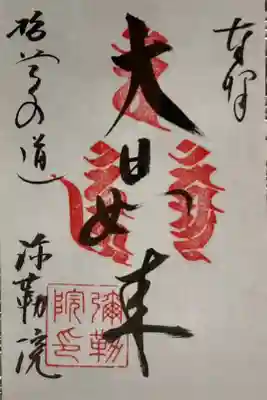 奉拝
大日如来
哲学の道 弥勒院
彌勒
院印